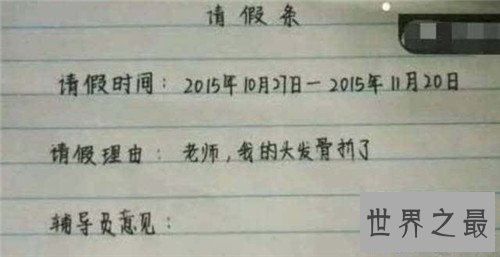 请假条
请假时间：2015年10月27日—2015年11月20日
请假理由：老师，我的头发骨折了
辅导员意见：
世界之最